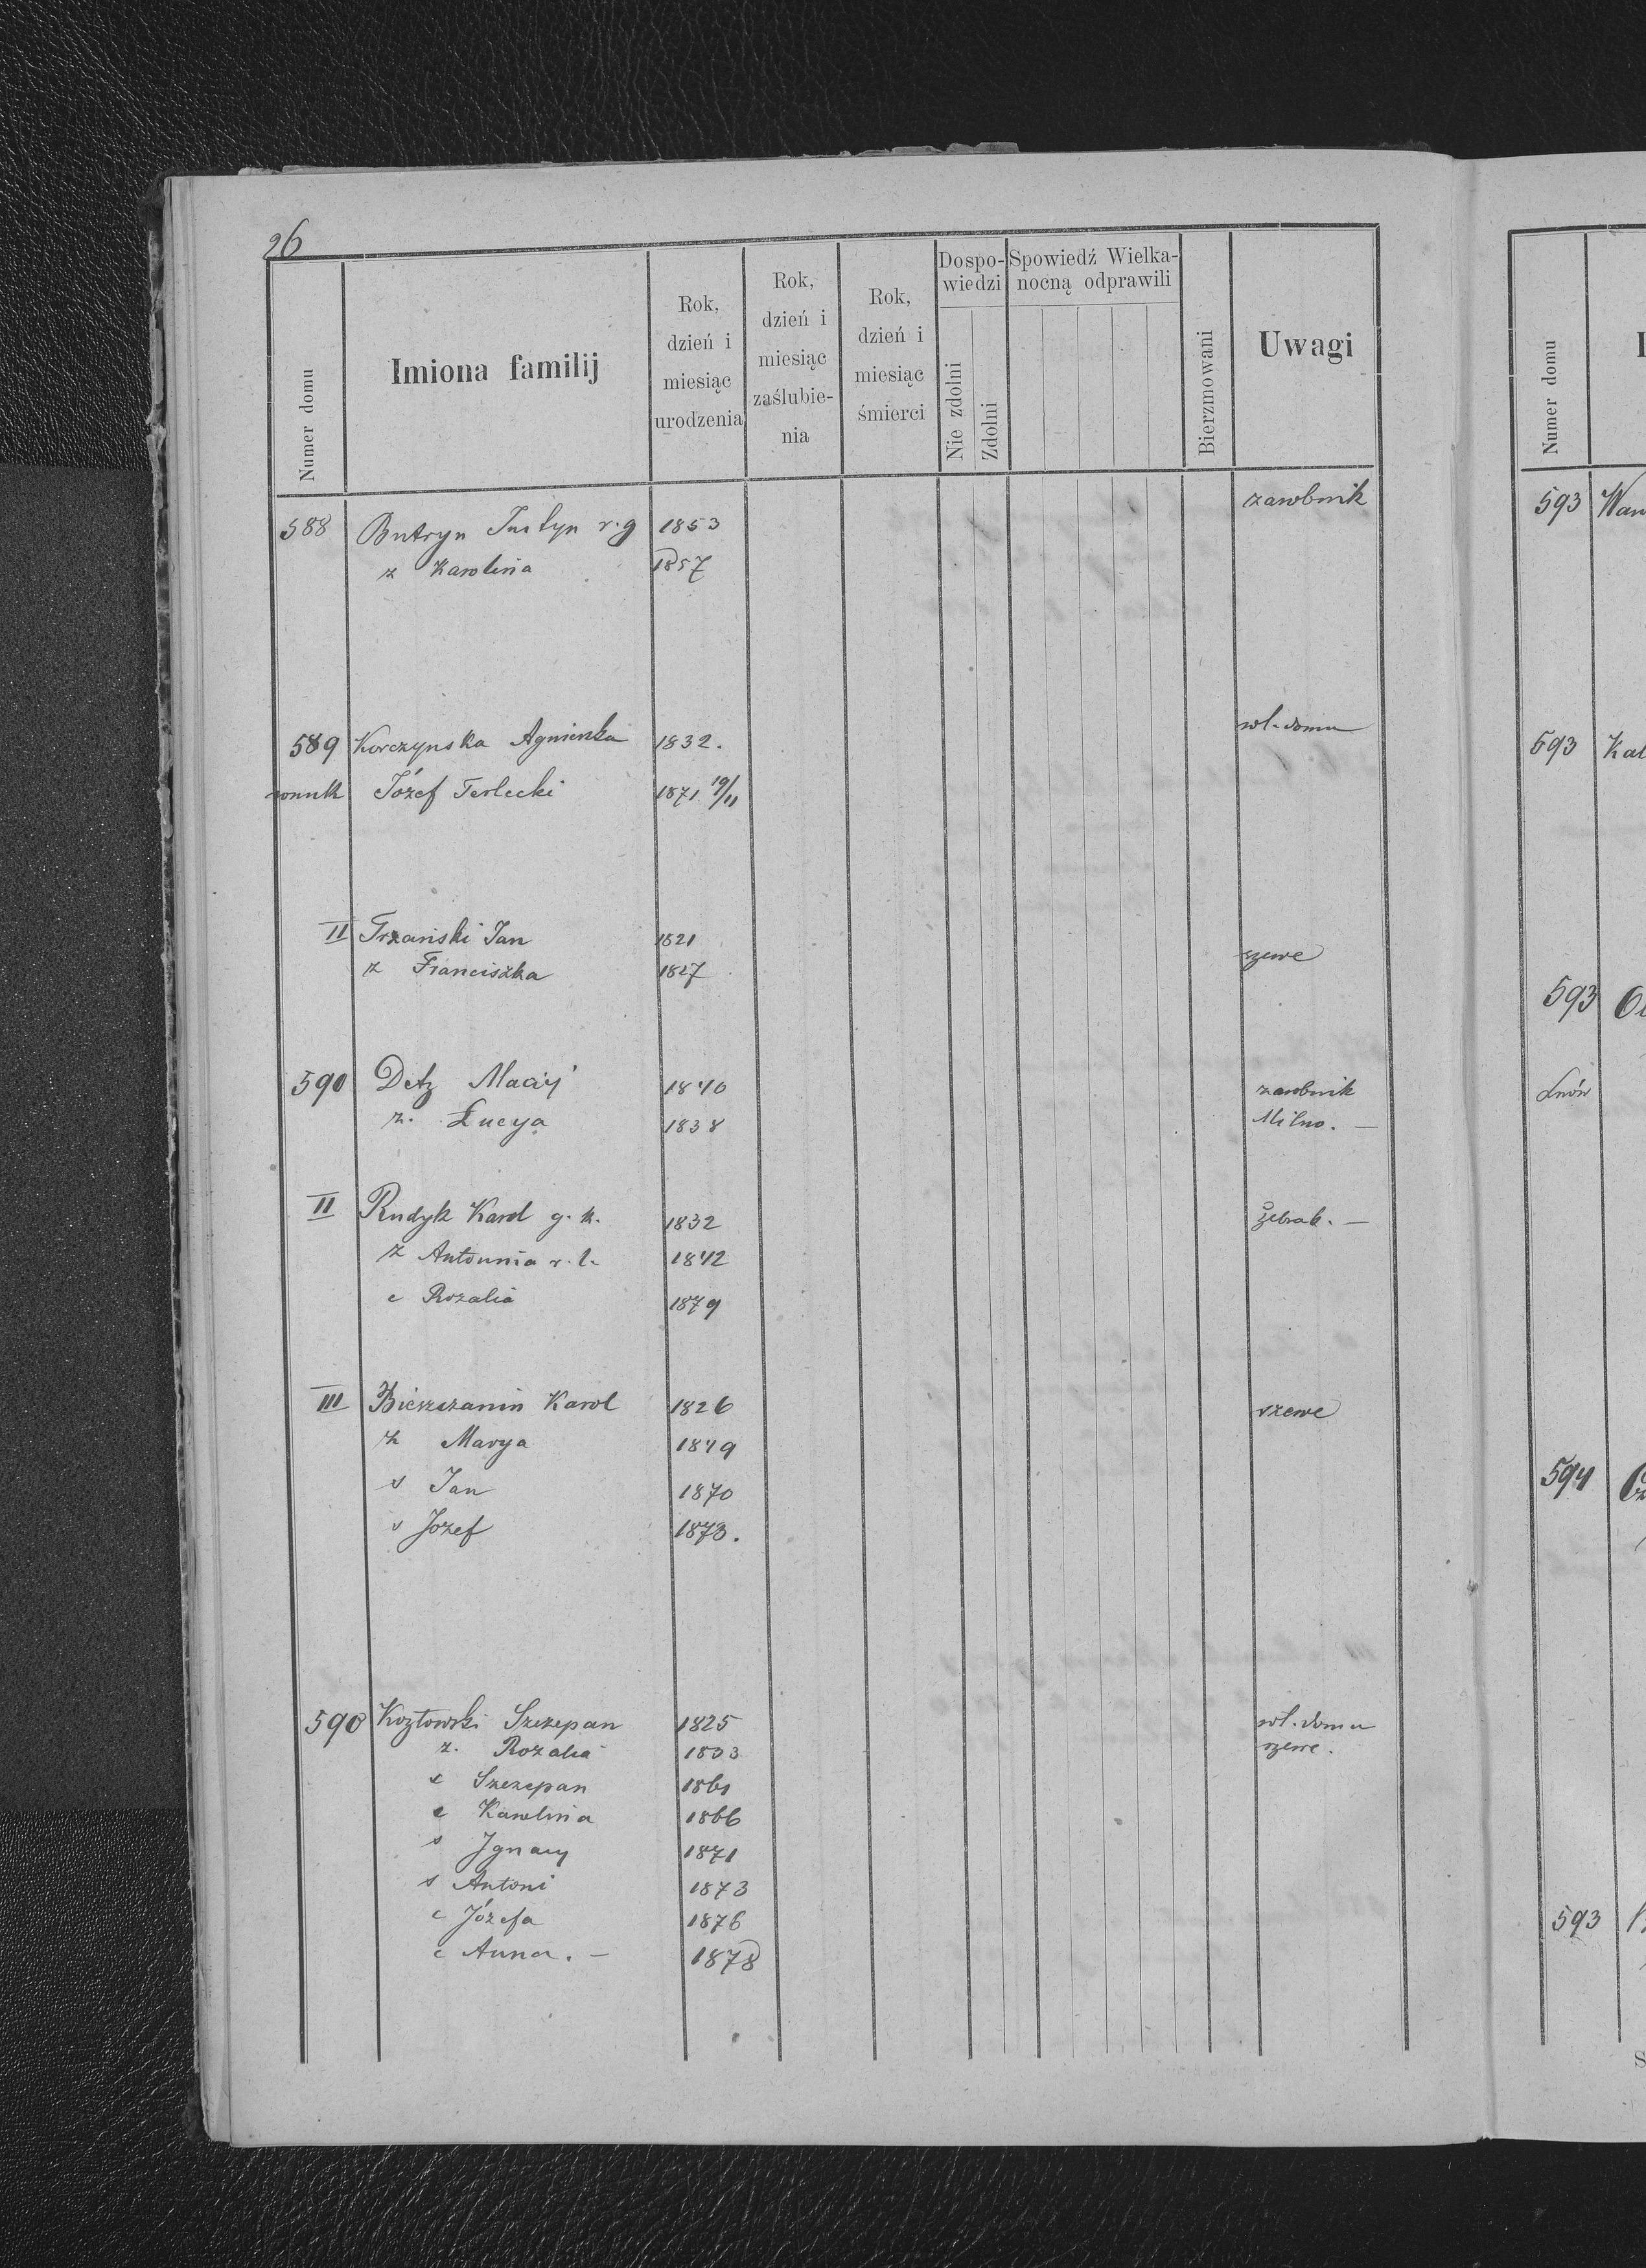 26
Numer domu | Imiona familij | Rok, dzień i miesiąc urodzenia | Rok, dzień i miesiąc zaślubie- nia | Rok, dzień i miesiąc śmierci | Dospo- wiedzi | Nie zdolni | Zdolni | Spowiedź Wielka- nocną odprawili | Bierzmowani | Uwagi
588 Butryn Justyn r.g 1853 zarobnik
z Karolina 1857
589 Korczynska Agnieszka 1832. wł. domu
wnuk Józef Terlecki 1871 19/11
II Trzański Jan 1821
z Franciszka 1827 szewc
590 Detz Maciej 1840 zarobnik
z. Łucya 1838 Milno. —
II Rudyk Karol g. k. 1832 żebrak. —
z Antonnia r. l. 1842
c Rozalia 1879
III Bieszczanin Karol 1826 szewc
z Marya 1849
s Jan 1870
s Jozef 1873.
590 Kozłowski Szczepan 1825 wł. domu
z. Rozalia 1833 szewc.
s Szczepan 1861
c Karolina 1866
s Ignacy 1871
s Antoni 1873
c Józefa 1876
c Anna. — 1878
Numer domu
593
593 Kat
593
Lwów
594
593